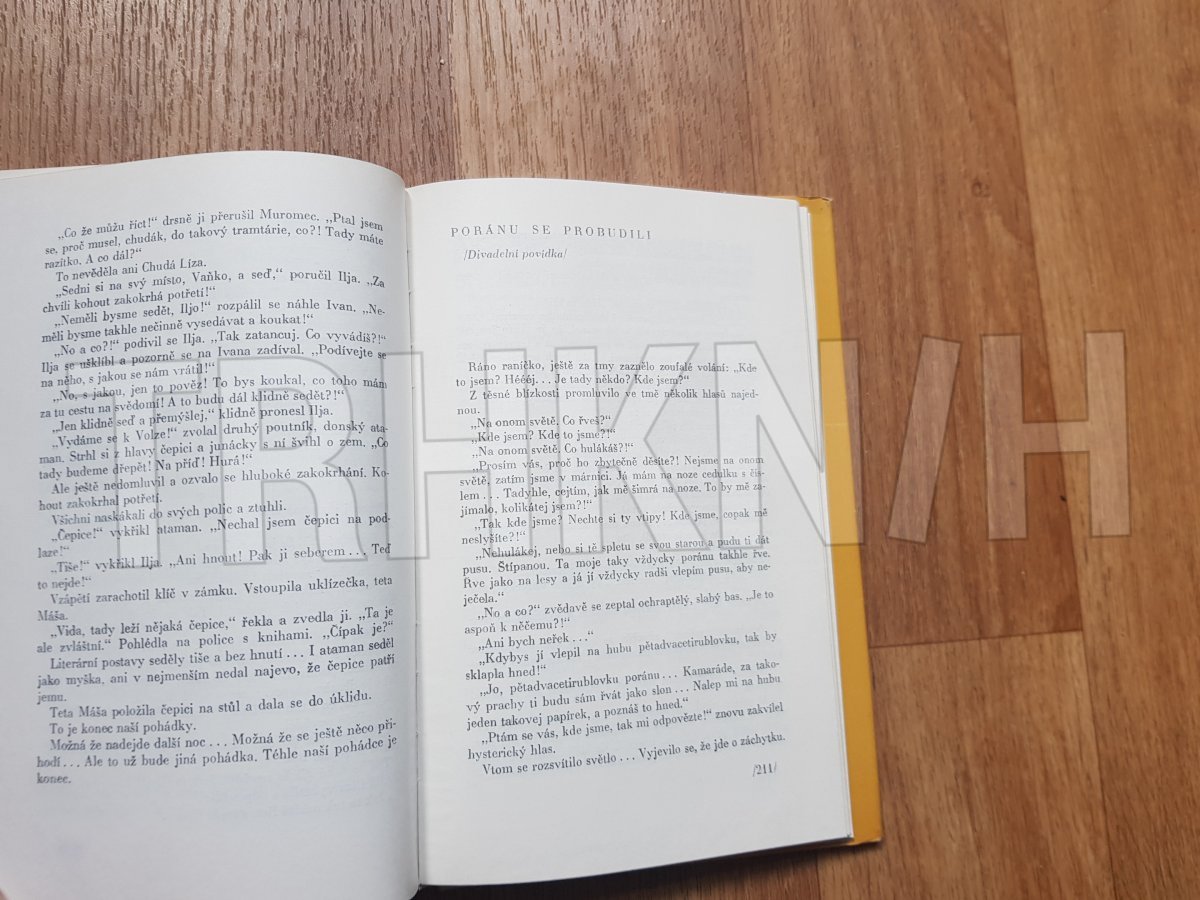 „Co že můžu říct!“ drsně ji přerušil Muromec. „Ptal jsem
se, proč musel, chudák, do takový tramtárie, co?! Tady máte
razítko. A co dál?“
To nevěděla ani Chudá Líza.
„Sedni si na svý místo, Vaňko, a seď,“ poručil Ilja. „Za
chvíli kohout zakokrhá potřetí!“
„Neměli bysme sedět, Iljo!“ rozpálil se náhle Ivan. „Ne-
měli bysme takhle nečinně vysedávat a koukat!“
„No a co?!“ podivil se Ilja. „Tak zatancuj. Co vyvádíš?!“
Ilja se ušklíbl a pozorně se na Ivana zadíval. „Podívejte se
na něho, s jakou se nám vrátil!“
„No, s jakou, jen to pověz! To bys koukal, co toho mám
za tu cestu na svědomí! A to budu dál klidně sedět?!“
„Jen klidně seď a přemýšlej,“ klidně pronesl Ilja.
„Vydáme se k Volze!“ zvolal druhý poutník, donský ata-
man. Strhl si z hlavy čepici a junácky s ní švihl o zem. „Co
tady budeme dřepět! Na příď! Hurá!“
Ale ještě nedomluvil a ozvalo se hluboké zakokrhání. Ko-
hout zakokrhal potřetí.
Všichni naskákali do svých polic a ztuhli.
„Čepice!“ vykřikl ataman. „Nechal jsem čepici na pod-
laze!“
„Tiše!“ vykřikl Ilja. „Ani hnout! Pak ji seberem... Teď
to nejde!“
Vzápětí zarachotil klíč v zámku. Vstoupila uklízečka, teta
Máša.
„Vida, tady leží nějaká čepice,“ řekla a zvedla ji. „Ta je
ale zvláštní.“ Pohlédla na police s knihami. „Čípak je?“
Literární postavy seděly tiše a bez hnutí... I ataman seděl
jako myška, ani v nejmenším nedal najevo, že čepice patří
jemu.
Teta Máša položila čepici na stůl a dala se do úklidu.
To je konec naší pohádky.
Možná že nadejde další noc... Možná že se ještě něco při-
hodí... Ale to už bude jiná pohádka. Téhle naší pohádce je
konec.
PORÁNU SE PROBUDILI
/Divadelní povídka/
Ráno raníčko, ještě za tmy zaznělo zoufalé volání: „Kde
to jsem? Hééej... Je tady někdo? Kde jsem?“
Z těsné blízkosti promluvilo ve tmě několik hlasů najed-
nou.
„Na onom světě. Co řveš?“
„Kde jsem? Kde to jsme?!“
„Na onom světě. Co hulákáš?!“
„Prosím vás, proč ho zbytečně děsíte?! Nejsme na onom
světě, zatím jsme v márnici. Já mám na noze cedulku s čís-
lem... Tadyhle, cejtím, jak mě šimrá na noze. To by mě za-
jímalo, kolikátej jsem?!“
„Tak kde jsme? Nechte si ty vtipy! Kde jsme, copak mě
neslyšíte?!“
„Nehulákej, nebo si tě spletu se svou starou a pudu ti dát
pusu. Štípanou. Ta moje taky vždycky poránu takhle řve.
Řve jako na lesy a já jí vždycky radši vlepím pusu, aby ne-
ječela.“
„No a co?“ zvědavě se zeptal ochraptělý, slabý bas. „Je to
aspoň k něčemu?!“
„Ani bych neřek...“
„Kdybys jí vlepil na hubu pětadvacetirublovku, tak by
sklapla hned!“
„Jo, pětadvacetirublovku poránu... Kamaráde, za tako-
vý prachy ti budu sám řvát jako slon... Nalep mi na hubu
jeden takovej papírek, a poznáš to hned.“
„Ptám se vás, kde jsme, tak mi odpovězte!“ znovu zakvílel
hysterický hlas.
Vtom se rozsvítilo světlo... Vyjevilo se, že jde o záchytku.
/211/
TRHKNIH